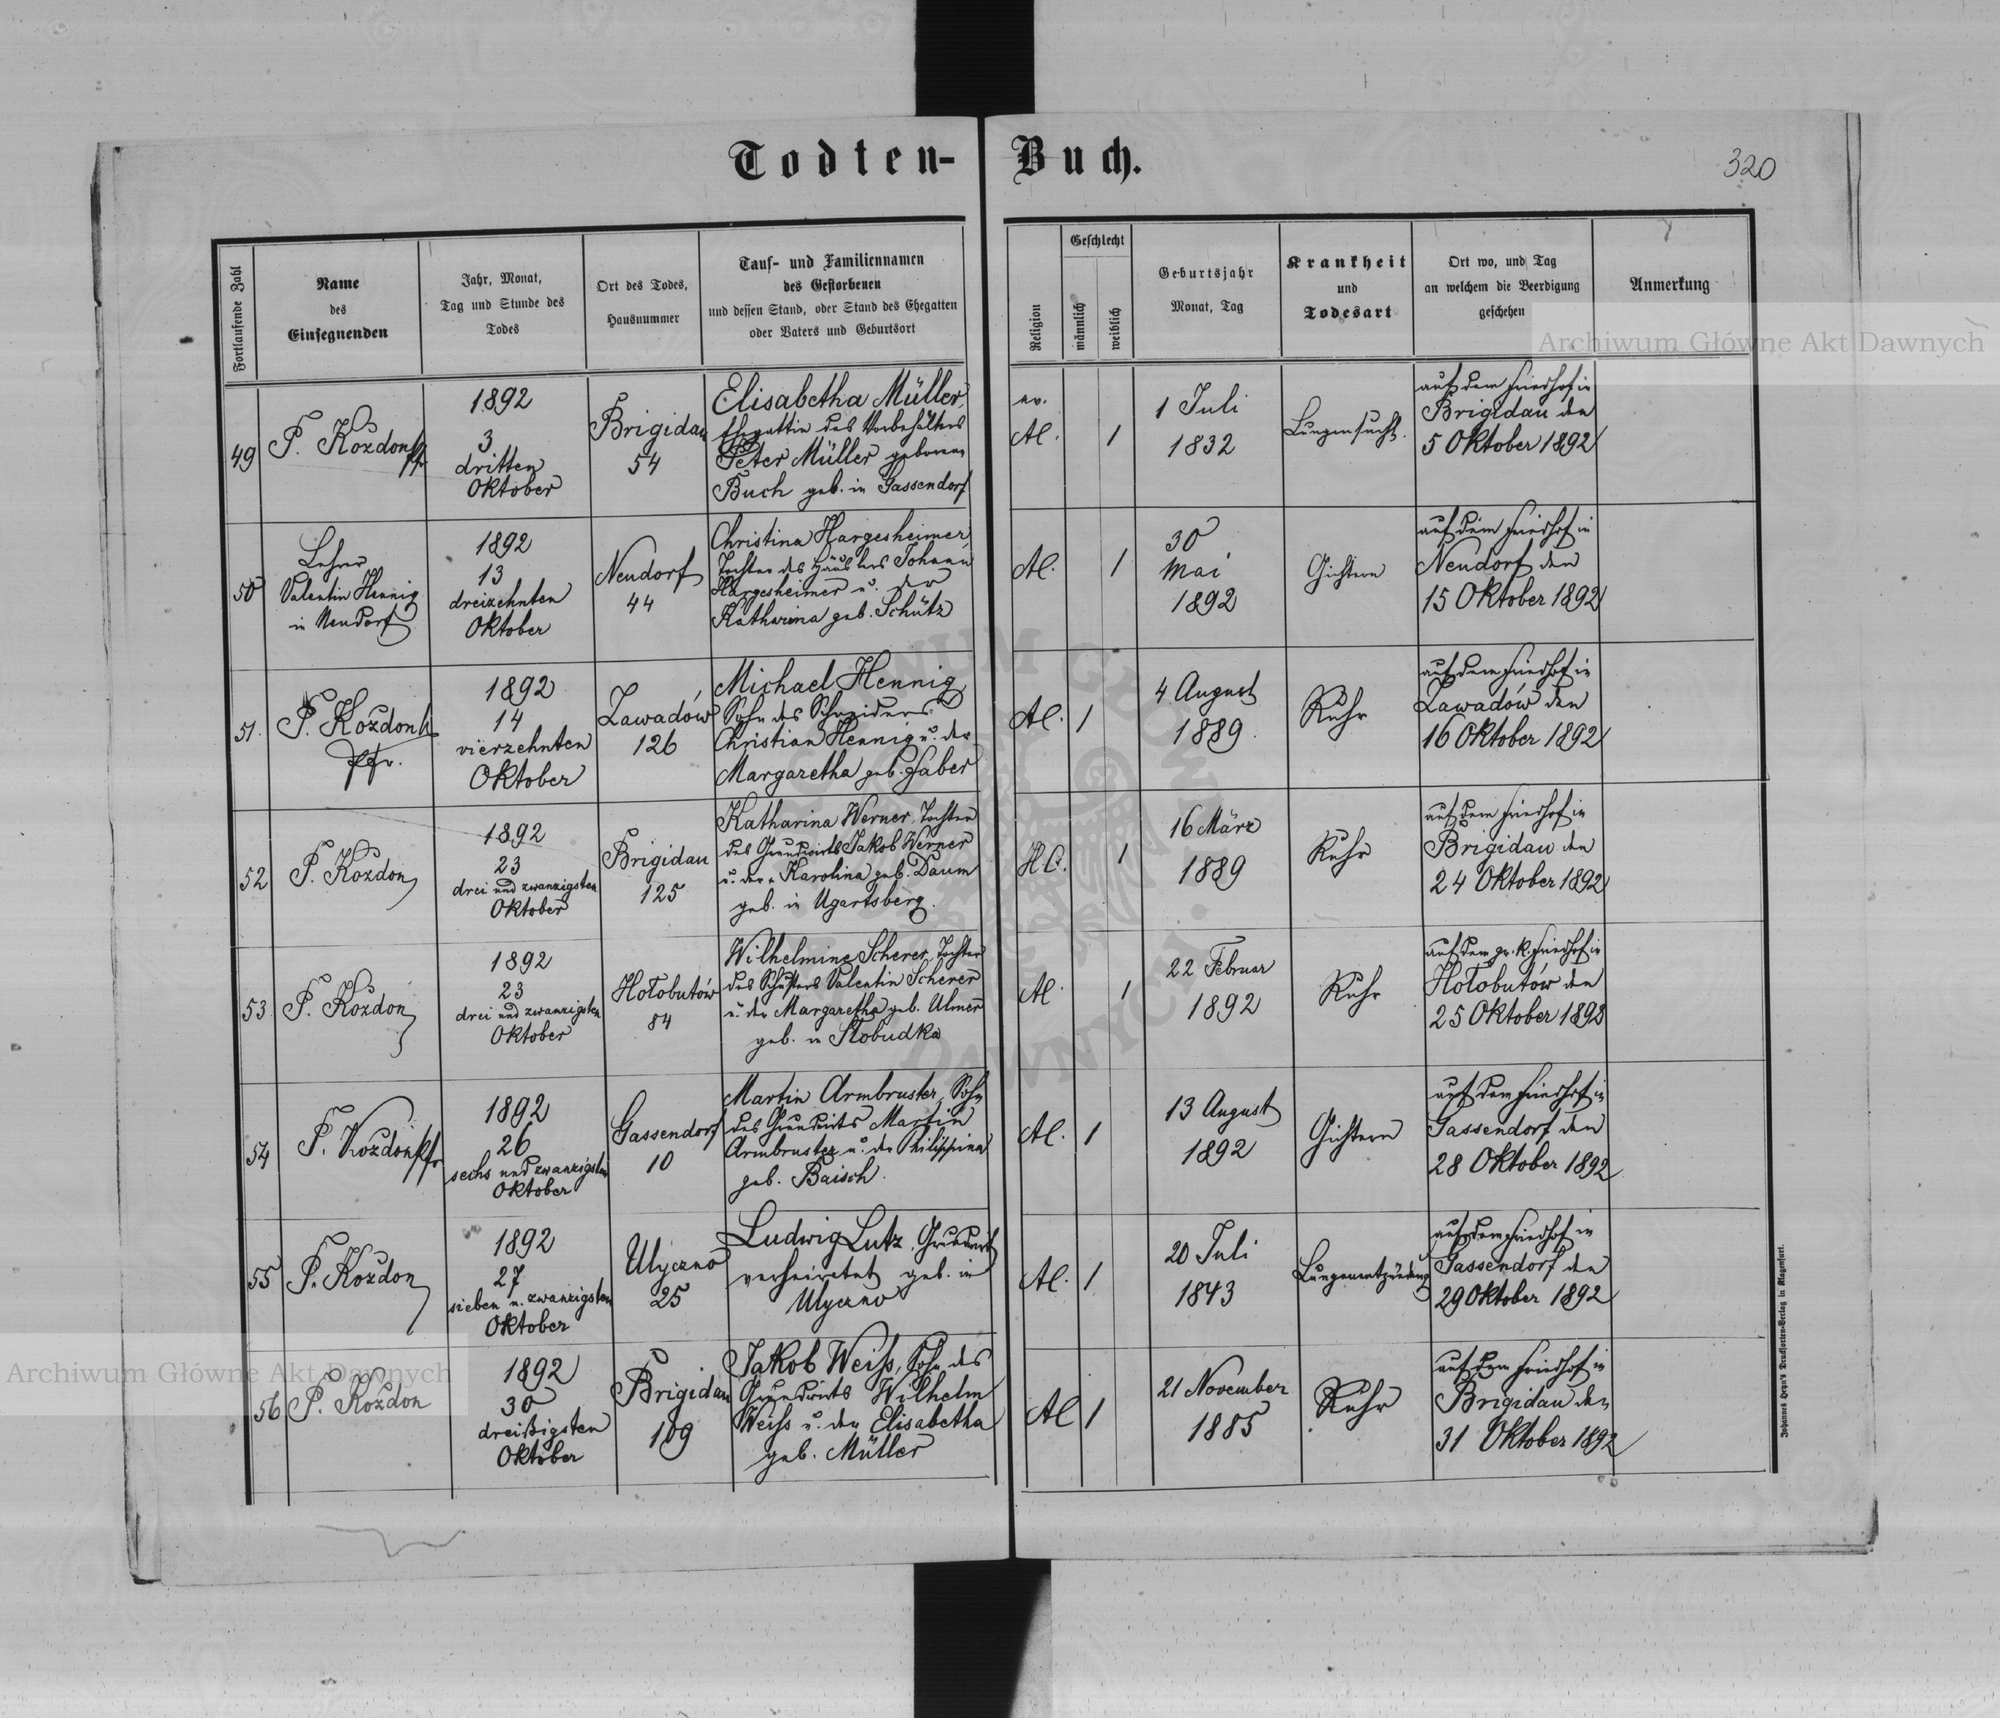 Todten-Buch.
320
Fortlaufende Zahl
Name
des
Einsegnenden
Jahr, Monat,
Tag und Stunde des
Todes
Ort des Todes,
Hausnummer
Tauf- und Familiennamen
des Gestorbenen
und dessen Stand, oder Stand des Ehegatten
oder Vaters und Geburtsort
Religion
Geschlecht
männlich
weiblich
Geburtsjahr
Monat, Tag
Krankheit
und
Todesart
Ort wo, und Tag
an welchem die Beerdigung
geschehen
Anmerkung
49
P. Kozdon Pfr
1892
3
dritten
Oktober
Brigidau
54
Elisabetha Müller,
Ehegattin des Vorbehälters
Peter Müller geborene
Buch geb. in Gassendorf
ev.
AC.
1
1 Juli
1832
Lungensucht.
auf dem Friedhof in
Brigidau den
5 Oktober 1892
50
Lehrer
Valentin Hennig
in Neudorf
1892
13
dreizehnten
Oktober
Neudorf
44
Christina Hargesheimer,
Tochter des Häuslers Johann
Hargesheimer u. der
Katharina geb. Schütz
AC.
1
30
Mai
1892
Gichtern
auf dem Friedhof in
Neudorf den
15 Oktober 1892
51.
P. Kozdon
Pfr.
1892
14
vierzehnten
Oktober
Zawadów
126
Michael Hennig,
Sohn des Schneiders
Christian Hennig u. der
Margaretha geb. Faber
AC.
1
4. August
1889.
Ruhr
auf dem Friedhof in
Zawadów den
16 Oktober 1892
52
P. Kozdon
1892
23
drei und zwanzigsten
Oktober
Brigidau
125
Katharina Werner, Tochter
des Grundwirts Jakob Werner
u. der Karolina geb. Daum
geb. in Ugartsberg.
HC.
1
16 März
1889
Ruhr
auf dem Friedhof in
Brigidau den
24 Oktober 1892
53
P. Kozdon
1892
23
drei und zwanzigsten
Oktober
Hołobutów
84
Wilhelmine Scherer, Tochter
des Schusters Valentin Scherer
u. der Margaretha geb. Ulmer
geb. in Słobudka
AC.
1
22 Februar
1892
Ruhr
auf dem gr. k. Friedhof in
Hołobutów den
25 Oktober 1892
54
P. Kozdon Pfr
1892
26
sechs und zwanzigsten
Oktober
Gassendorf
10
Martin Armbruster, Sohn
des Grundwirts Martin
Armbruster u. der Philippina
geb. Baisch.
AC.
1
13 August
1892
Gichtern
auf dem Friedhof in
Gassendorf den
28 Oktober 1892
55
P. Kozdon
1892
27
sieben u. zwanzigsten
Oktober
Ulyczno
25
Ludwig Lutz, Grundwirt
verheiratet geb. in
Ulyczno
AC.
1
20 Juli
1843
Lungenentzündung
auf dem Friedhof in
Gassendorf den
29 Oktober 1892
56
P. Kozdon
1892
30
dreißigsten
Oktober
Brigidau
109
Jakob Weiß, Sohn des
Grundwirts Wilhelm
Weiß u. der Elisabetha
geb. Müller
AC
1
21 November
1885
Ruhr
auf dem Friedhof in
Brigidau den
31 Oktober 1892
Johannes Heyn's Drucksorten-Verlag in Klagenfurt.
Archiwum Główne Akt Dawnych
Archiwum Główne Akt Dawnych